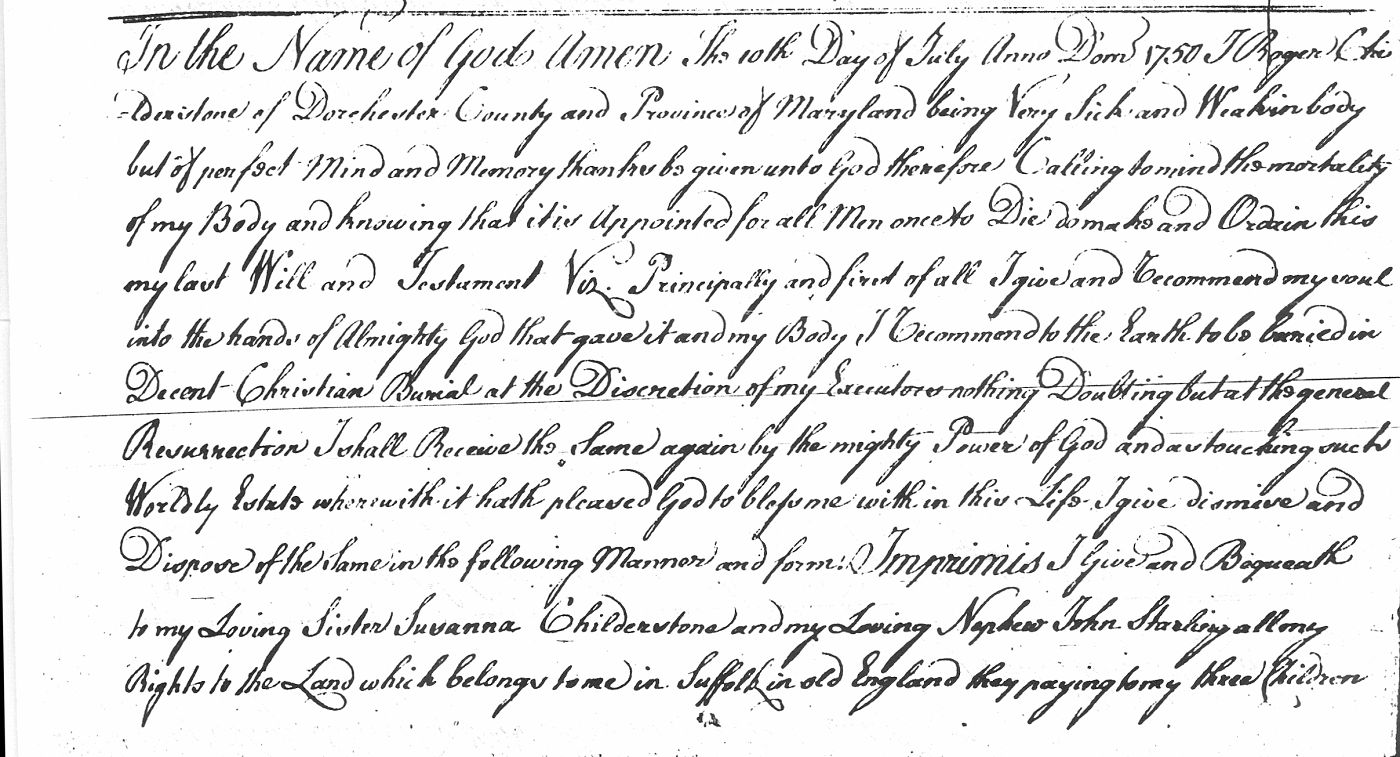 In the Name of God Amen The 10th Day of July Anno Dom 1750 I Roger Chi
-lderstone of Dorchester County and Province of Maryland being Very Sick and Weak in body
but of perfect Mind and Memory thanks be given unto God therefore Calling to mind the mortality
of my Body and knowing that it is Appointed for all Men once to Die do make and Ordain this
my last Will and Testament Viz. Principally and first of all I give and Recommend my soul
into the hands of Almighty God that gave it and my Body I Recommend to the Earth to be buried in
Decent Christian Burial at the Discretion of my Executors nothing Doubting but at the general
Resurrection I shall Receive the Same again by the mighty Power of God and as touching such
Worldly Estate wherewith it hath pleased God to bless me with in this Life I give dismise and
Dispose of the Same in the following Manner and form. Imprimis I Give and Bequeath
to my Loving Sister Susanna Childerstone and my Loving Nephew John Starling all my
Rights to the Land which belongs to me in Suffolk in old England they paying to my three Children